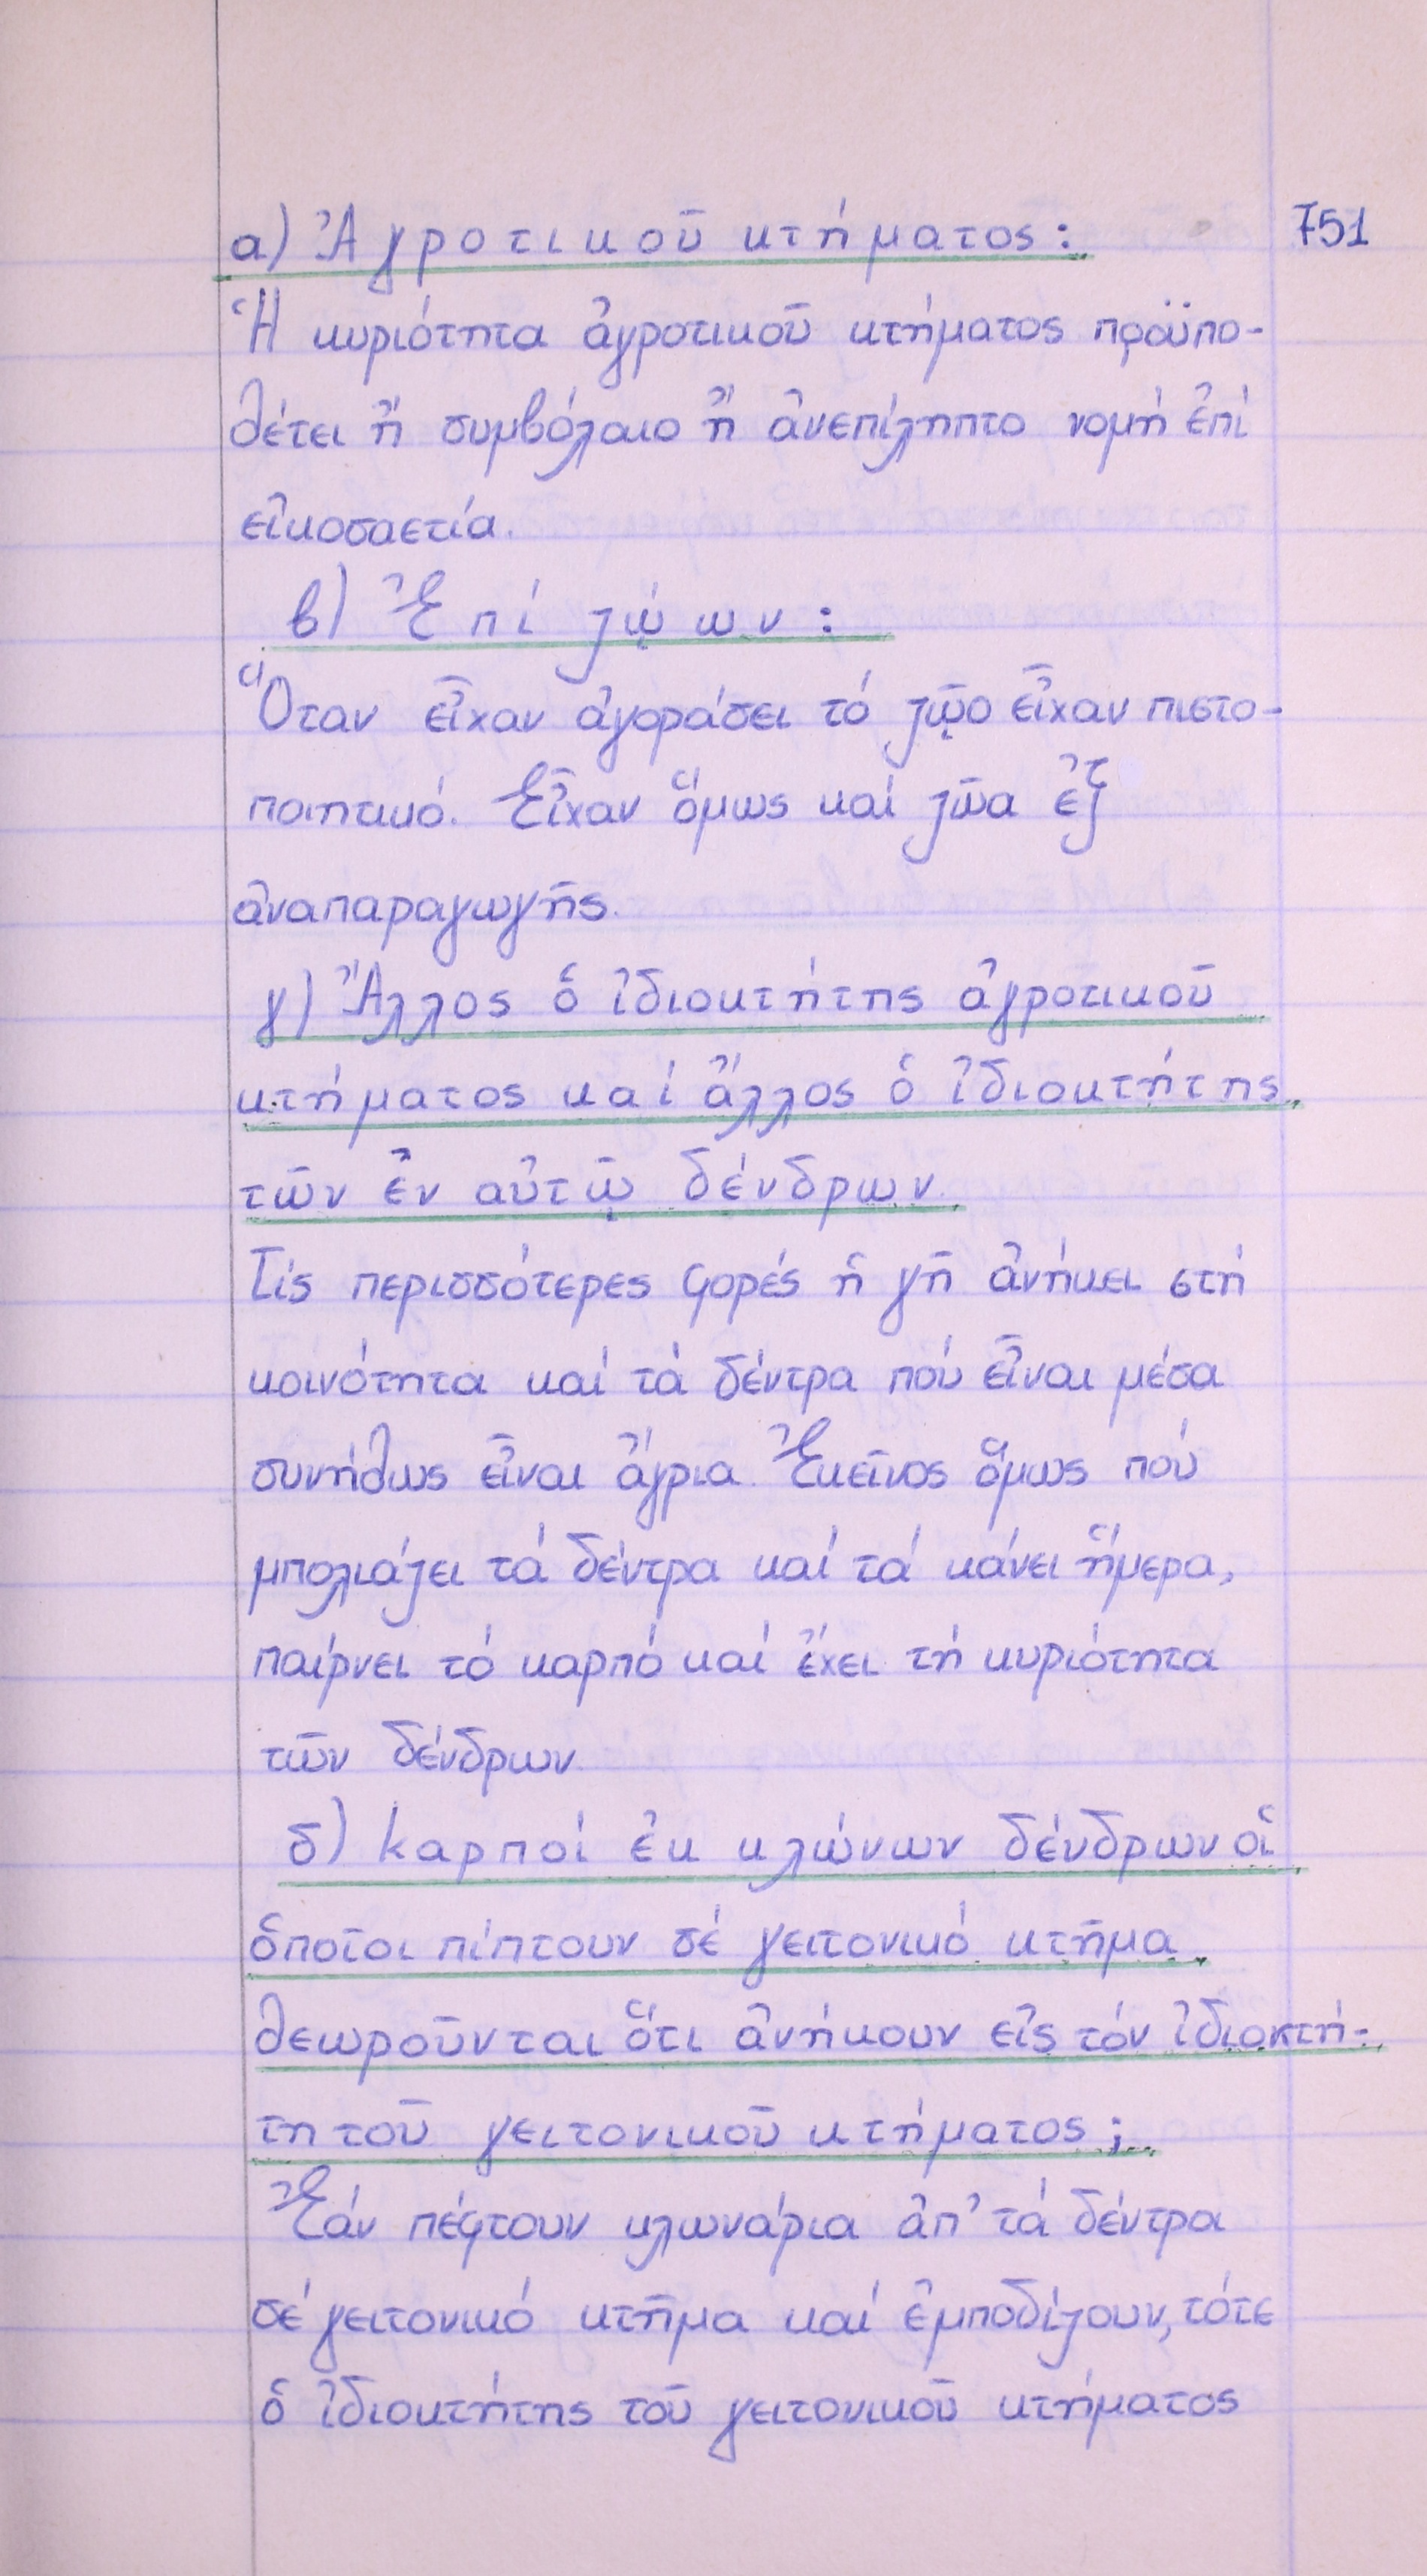 751
α) Ἀγροτικοῦ κτήματος:
Ἡ κυριότητα ἀγροτικοῦ κτήματος προϋπο-
θέτει ἤ συμβόλαιο ἤ ἀνεπίληπτο νομή ἐπί
εἰκοσαετία.
β) Ἐπί ζώων:
Ὅταν εἶχαν ἀγοράσει τό ζῶο εἶχαν πιστο-
ποιητικό. Εἶχαν ὅμως καί ζῶα ἐξ
ἀναπαραγωγῆς.
γ) Ἄλλος ὁ ἰδιοκτήτης ἀγροτικοῦ
κτήματος καί ἄλλος ὁ ἰδιοκτήτης
τῶν ἐν αὐτῷ δένδρων.
Τίς περισσότερες φορές ἡ γῆ ἀνήκει στή
κοινότητα καί τά δέντρα πού εἶναι μέσα
συνήθως εἶναι ἄγρια. Ἐκεῖνος ὅμως πού
μπολιάζει τά δέντρα καί τά κάνει ἥμερα,
παίρνει τό καρπό καί ἔχει τή κυριότητα
τῶν δένδρων.
δ) Καρποί ἐκ κλώνων δένδρων οἱ
ὁποῖοι πίπτουν σέ γειτονικό κτῆμα
θεωροῦνται ὅτι ἀνήκουν εἰς τόν ἰδιοκτή-
τη τοῦ γειτονικοῦ κτήματος;
Ἐάν πέφτουν κλωνάρια ἀπ' τά δέντρα
σέ γειτονικό κτῆμα καί ἐμποδίζουν, τότε
ὁ ἰδιοκτήτης τοῦ γειτονικοῦ κτήματος